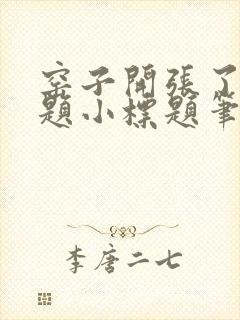 窑子開張了
題小標題筆
李唐二七